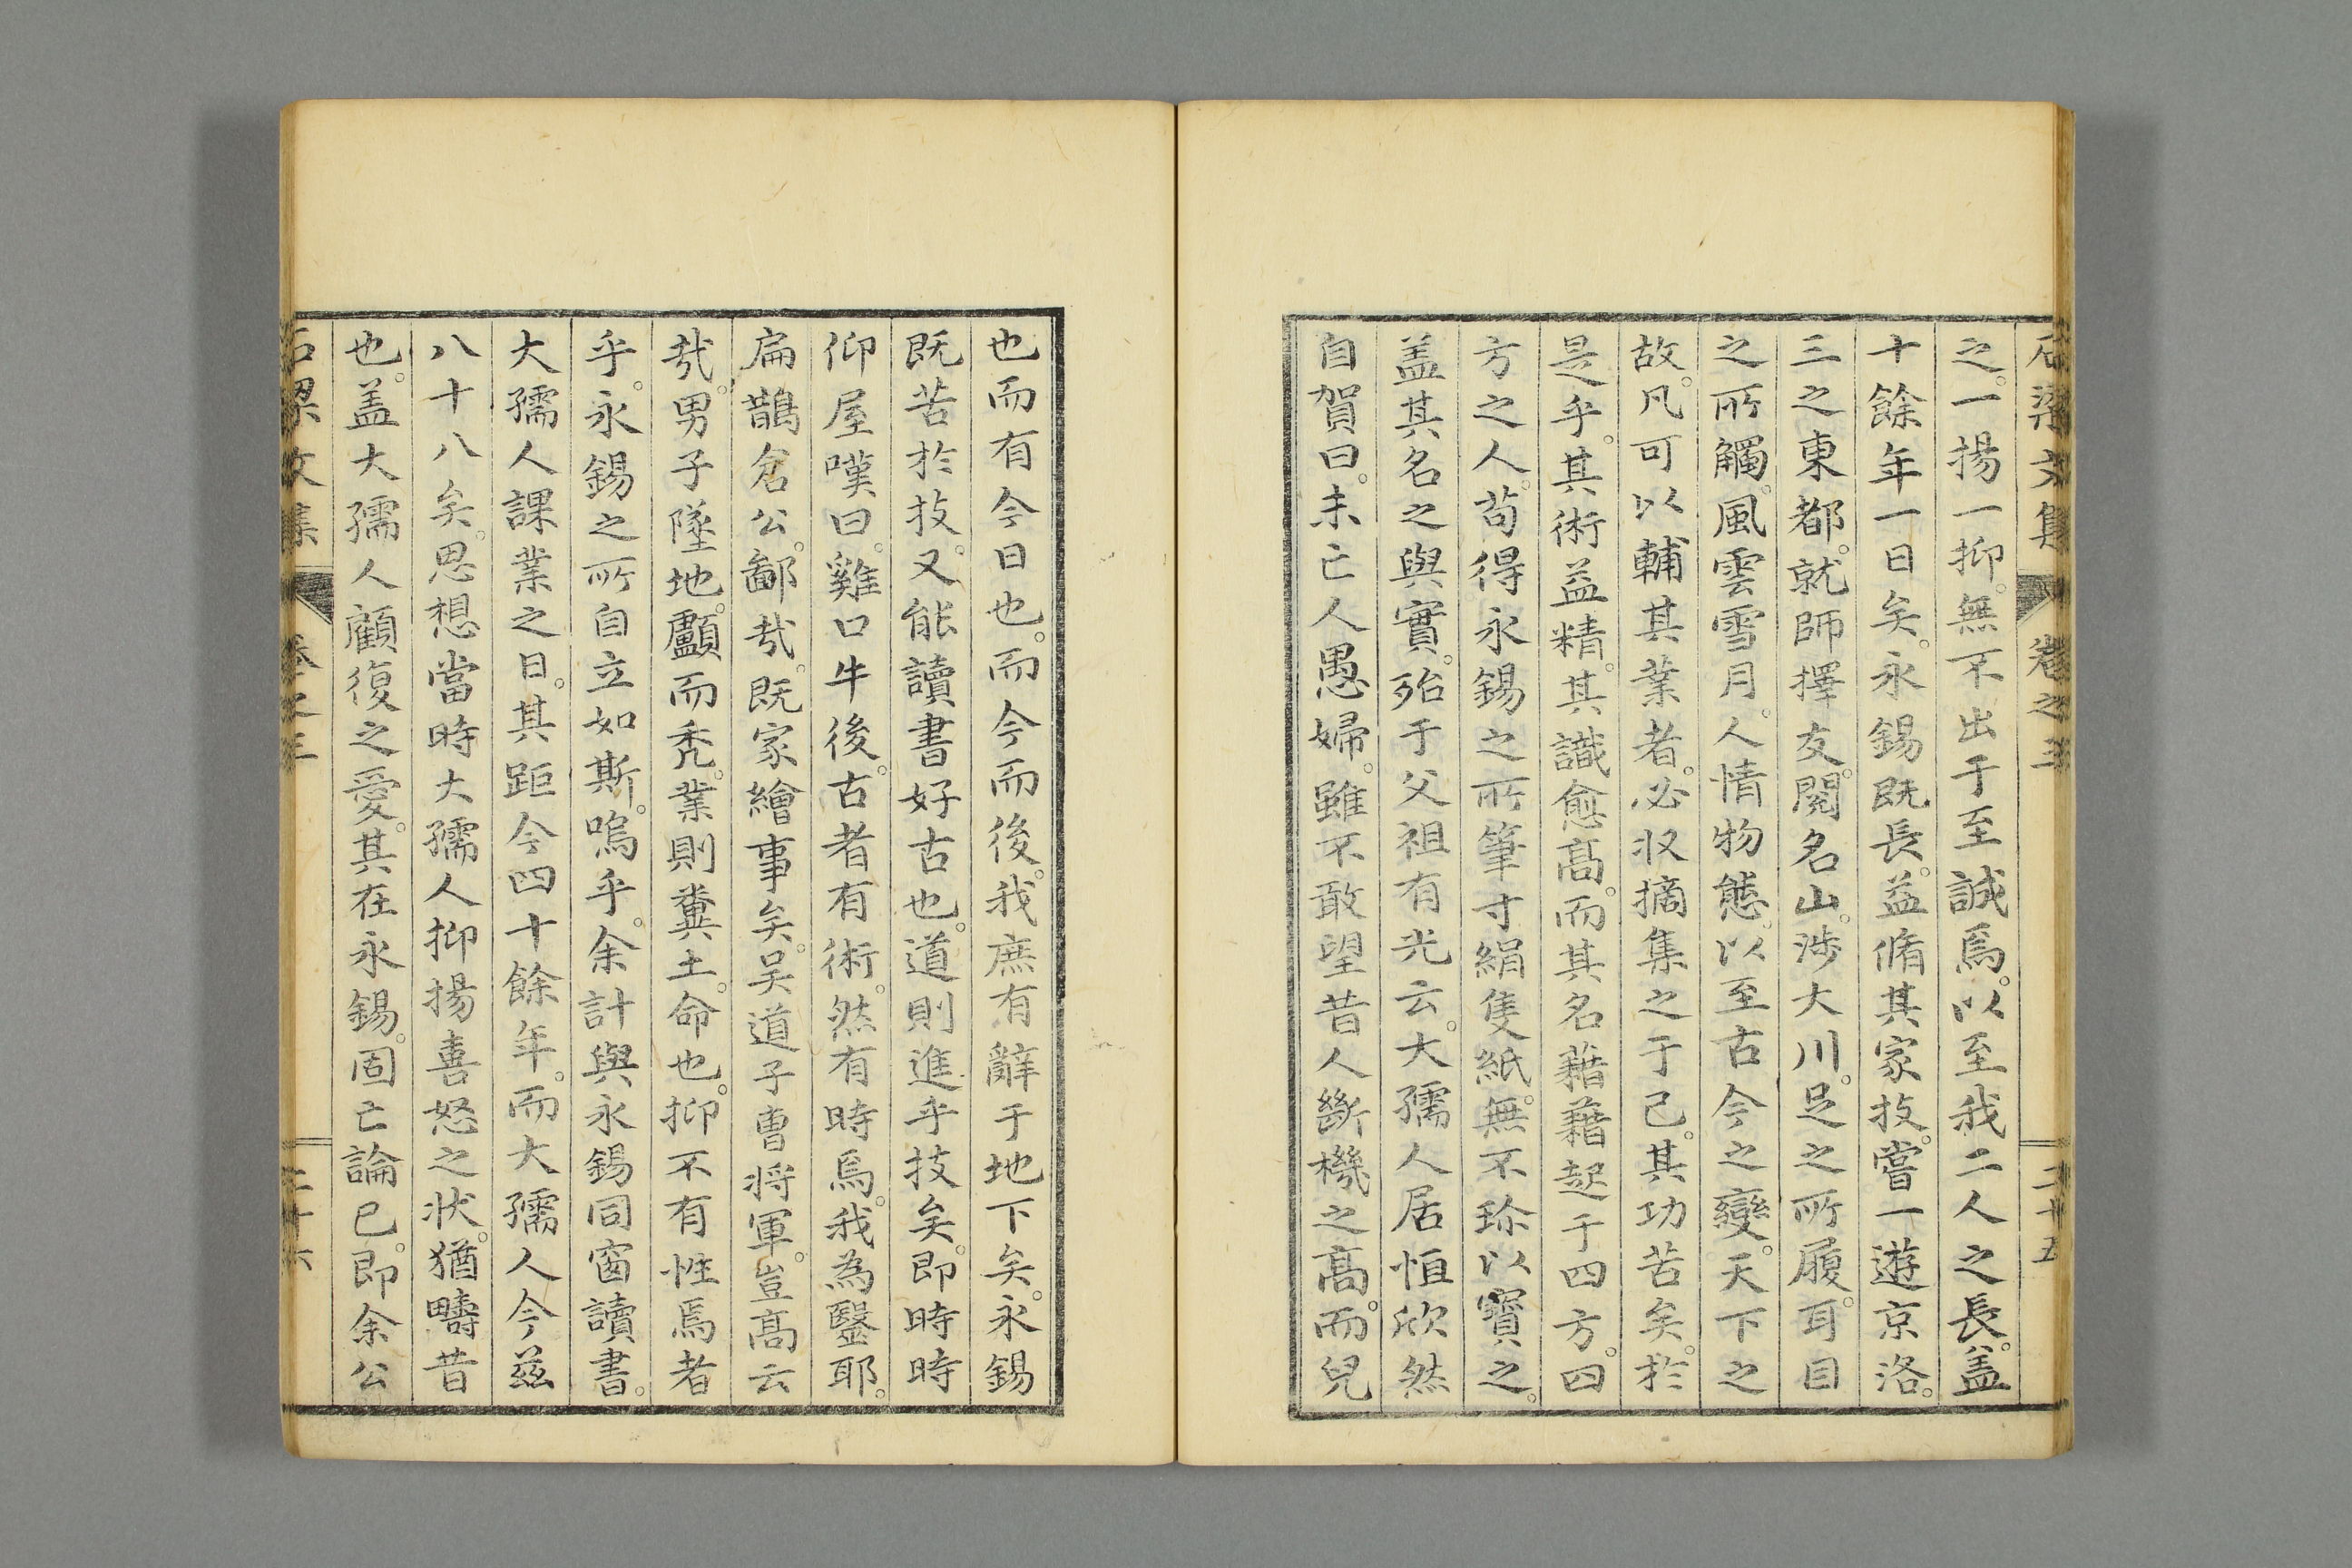 石梁文集 卷之三 二十五
之。一揚一抑。無不出于至誠焉。以至我二人之長。蓋
十餘年一日矣。永錫既長。益脩其家技。嘗一遊京洛。
三之東都。就師擇友。閱名山。涉大川。足之所履。耳目
之所觸。風雲雪月。人情物態。以至古今之變。天下之
故。凡可以輔其業者。必収摘集之于己。其功苦矣。於
是乎。其術益精。其識愈高。而其名藉藉起于四方。四
方之人。苟得永錫之所筆寸絹隻紙。無不珍以寶之。
蓋其名之與實。殆于父祖有光云。大孺人居恒欣然
自賀曰。未亡人愚婦。雖不敢望昔人斷機之高。而兒
也而有今日也。而今而後。我庶有辭于地下矣。永錫
既苦於技。又能讀書好古也。道則進乎技矣。即時時
仰屋嘆曰。雞口牛後。古者有術。然有時焉。我為毉耶。
扁鵲倉公。鄙哉。既家繪事矣。吴道子曹將軍。豈高云
哉。男子墜地。顱而禿。業則糞土。命也。抑不有性焉者
乎。永錫之所自立如斯。嗚乎。余計與永錫同窗讀書。
大孺人課業之日。其距今四十餘年。而大孺人今茲
八十八矣。思想當時大孺人抑揚喜怒之状。猶疇昔
也。蓋大孺人顧復之愛。其在永錫。固亡論已。即余公
石梁文集 卷之三 二十六